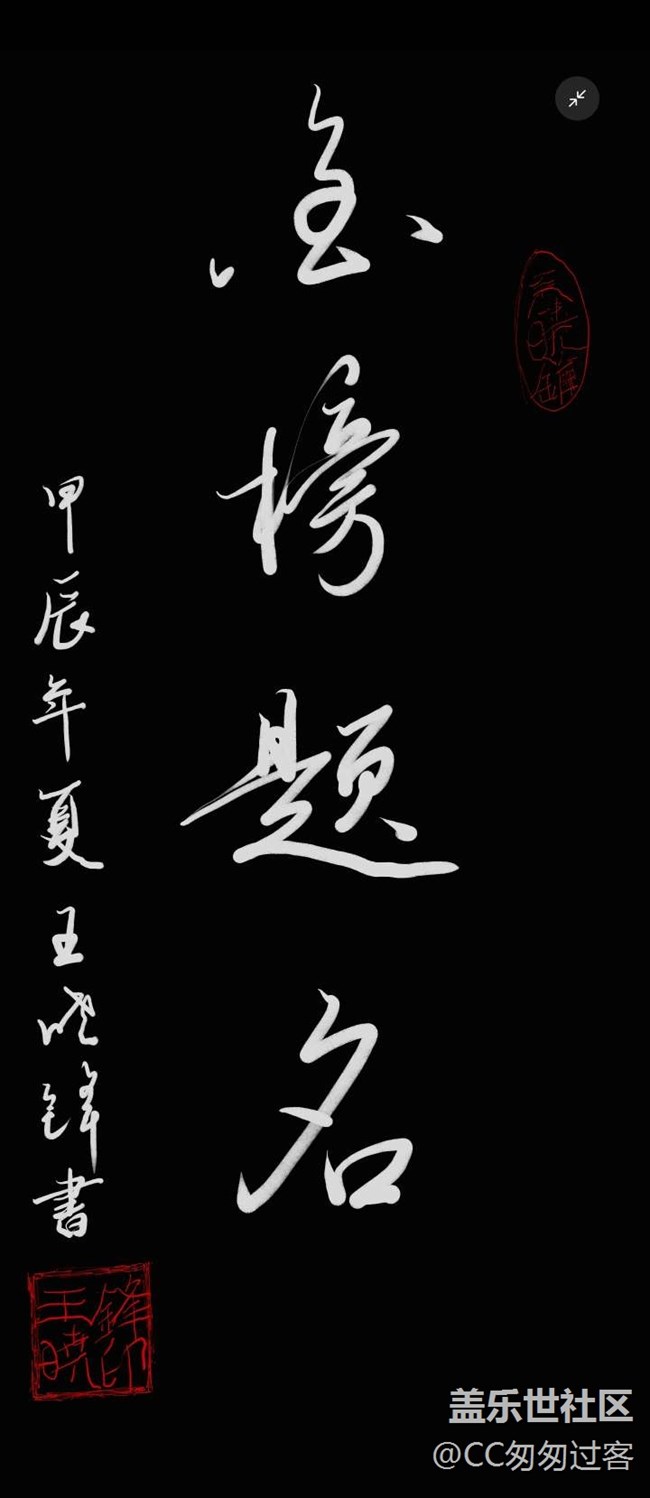 金榜题名
甲辰年夏王晓锋書
王曉鋒
王曉鋒印
盖乐世社区
@CC匆匆过客